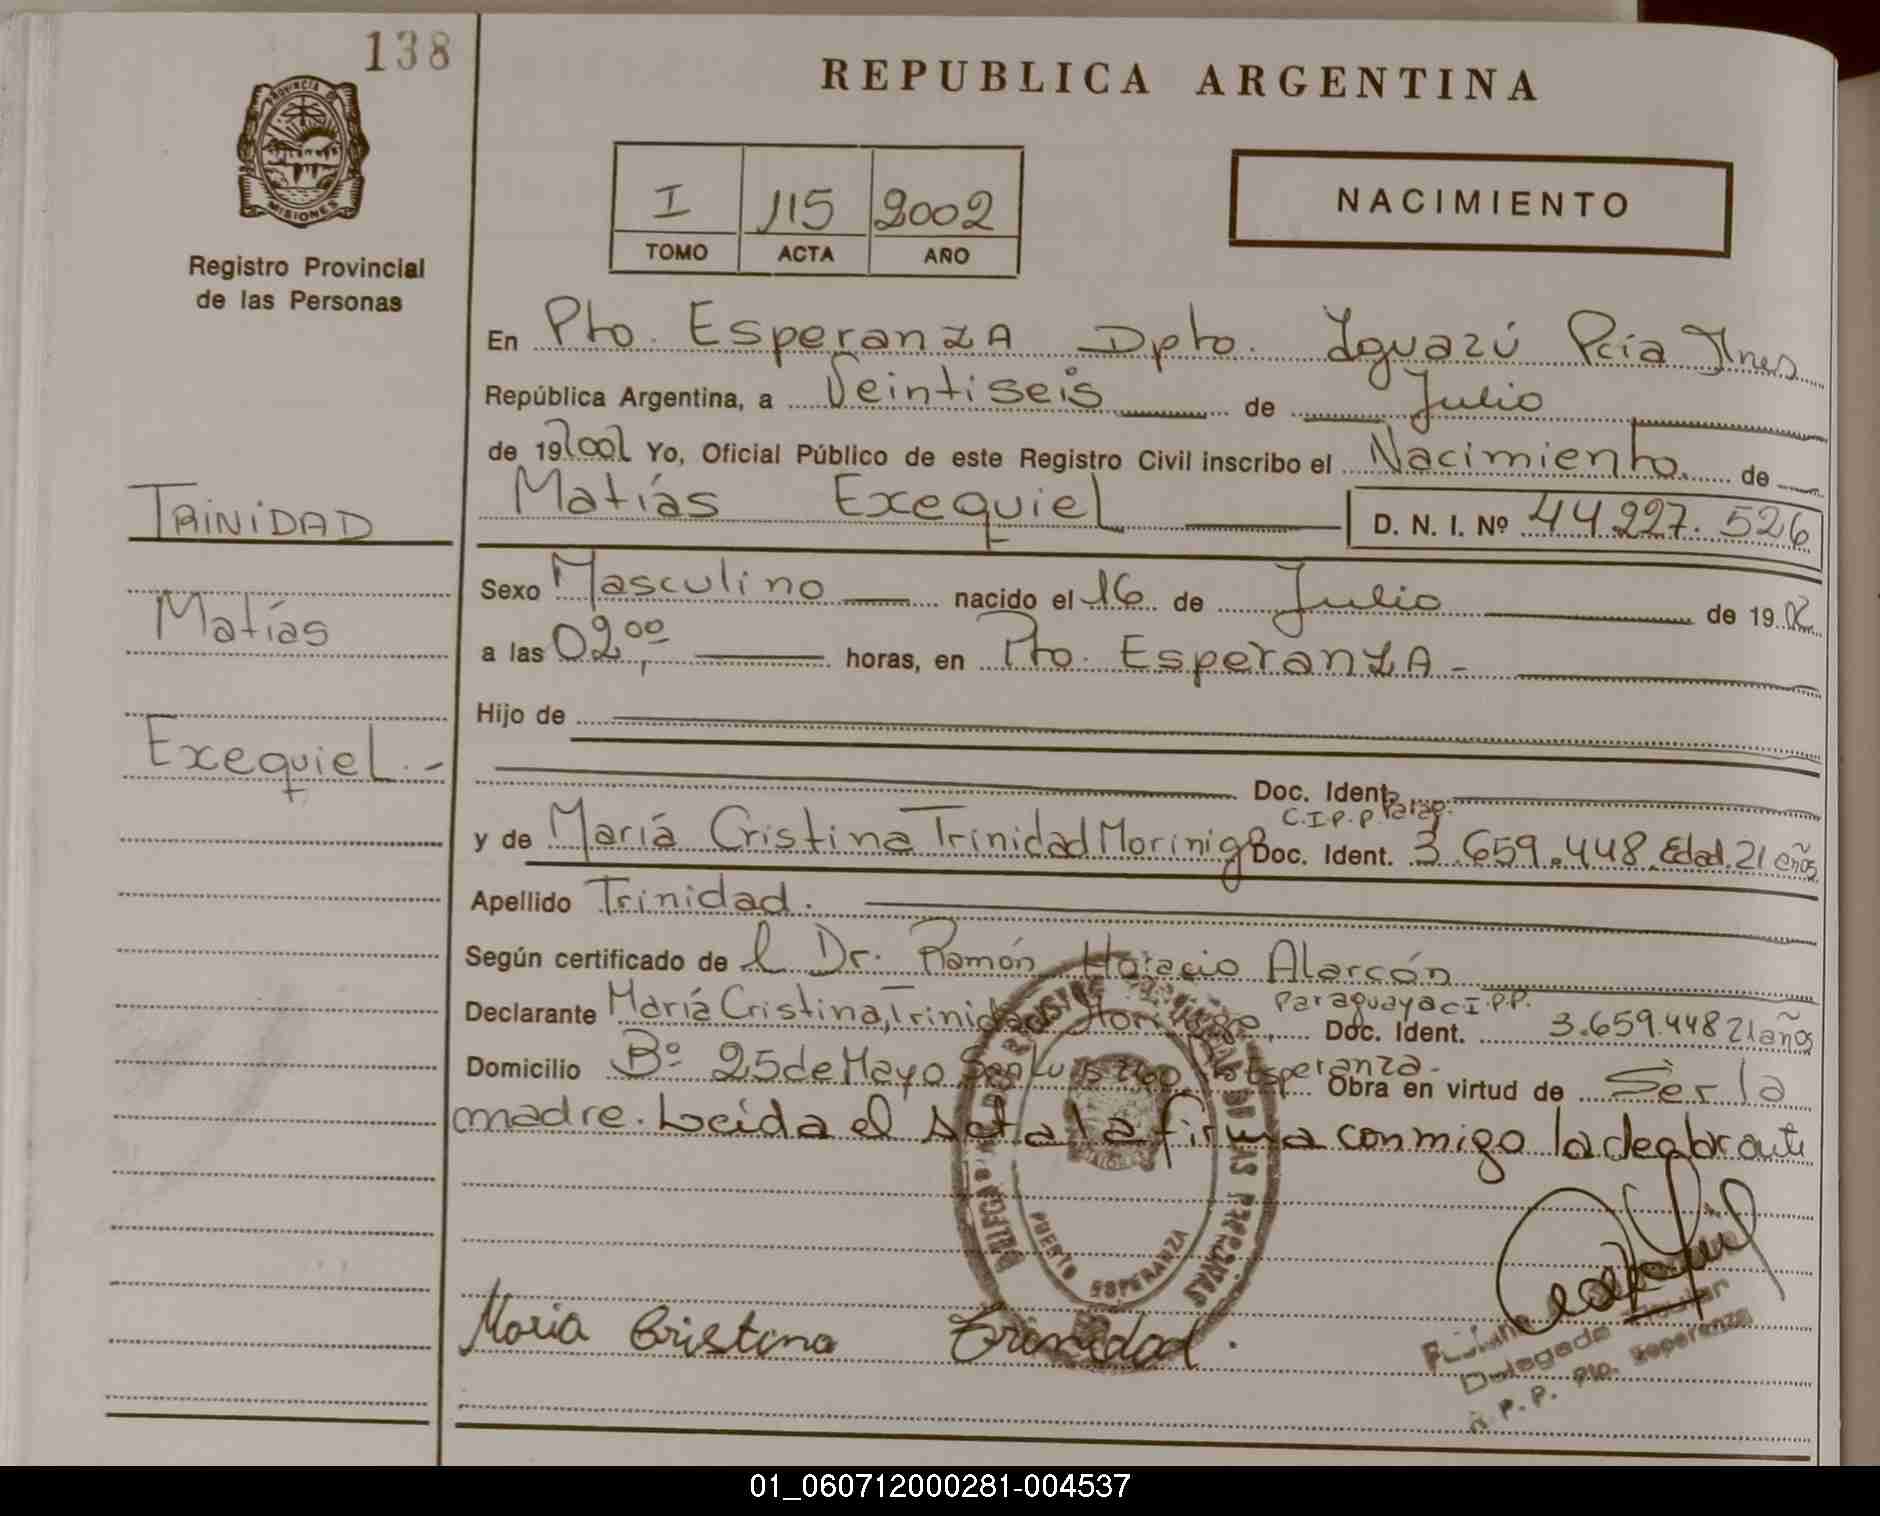 138
REPUBLICA ARGENTINA
PROVINCIA DE
MISIONES
Registro Provincial
de las Personas
I 115 2002
TOMO ACTA AÑO
NACIMIENTO
En Pto. Esperanza Dpto. Iguazú Pcia Mnes
República Argentina, a Veintiseis de Julio
de 192002 Yo, Oficial Público de este Registro Civil inscribo el Nacimiento de
Matías Exequiel D. N. I. Nº 44.227.526
TRINIDAD
Matías
Exequiel.-
Sexo Masculino nacido el 16 de Julio de 19 02
a las 02,00 horas, en Pto. Esperanza-
Hijo de
Doc. Ident.
C.I.P.P Parag.
y de María Cristina Trinidad Morinigo Doc. Ident. 3.659.448. Edad. 21 años
Apellido Trinidad.
Según certificado de l Dr. Ramón Horacio Alarcón
Paraguaya C.I.P.P.
Declarante María Cristina Trinidad Morinigo Doc. Ident. 3.659.448 21 años
Domicilio Bº 25 de Mayo Esperanza- Obra en virtud de Ser la
madre. Leida el Acta la firma conmigo la
DE LAS PERSONAS
PUERTO ESPERANZA
Maria Cristina Trinidad.
Delegada Titular
R. P. P. Pto. Esperanza
01_060712000281-004537